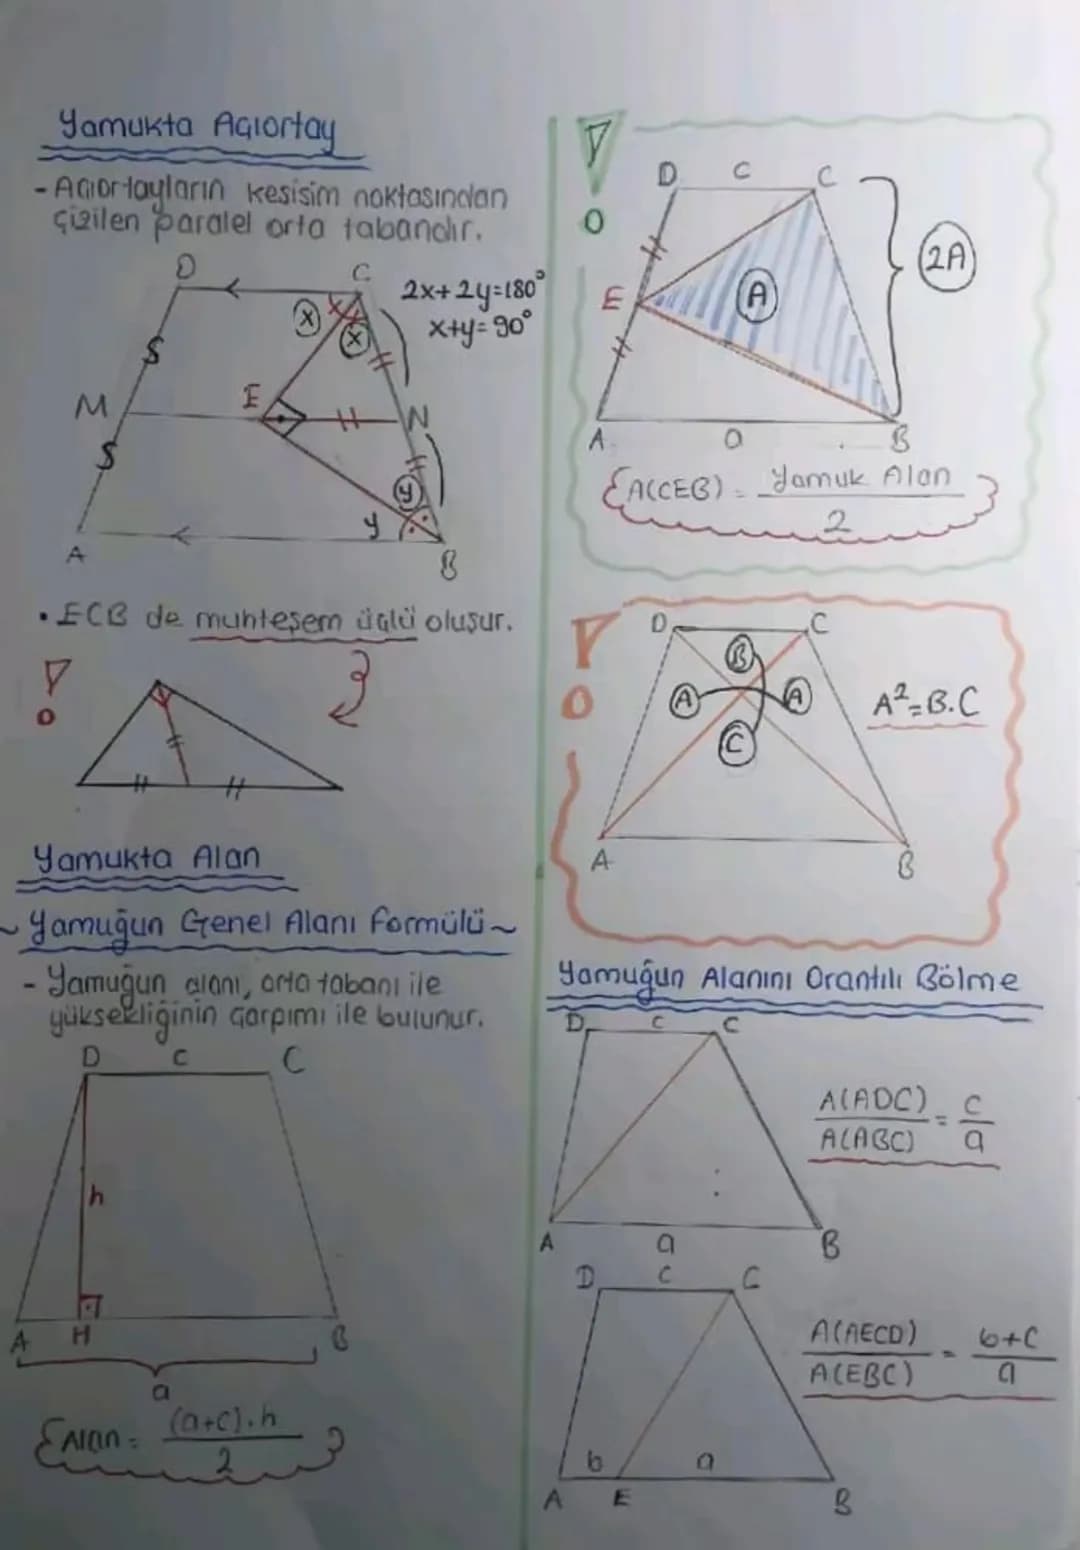 Yamukta Açıortay
- Açıortayların kesişim noktasından
çizilen paralel orta tabandır.
D
C
2x+2y=180°
x+y=90°
x
x
S
M
E
N
S
y
y
A
B
• ECB de muhteşem üçlü oluşur.
Yamukta Alan
~ Yamuğun Genel Alanı Formülü ~
- Yamuğun alanı, orta tabanı ile
yüksekliğinin çarpımı ile bulunur.
D c C
h
A H B
a
Alan = (a+c).h
2
D c C
2A
E
A
A a B
A(CEB) = Yamuk Alan
2
D C
B
A A
A²=B.C
C
A B
Yamuğun Alanını Orantılı Bölme
D c C
A(ADC) = c
A(ABC) a
A a B
D c C
A(AECD) = b+c
A(EBC) a
b a
A E B